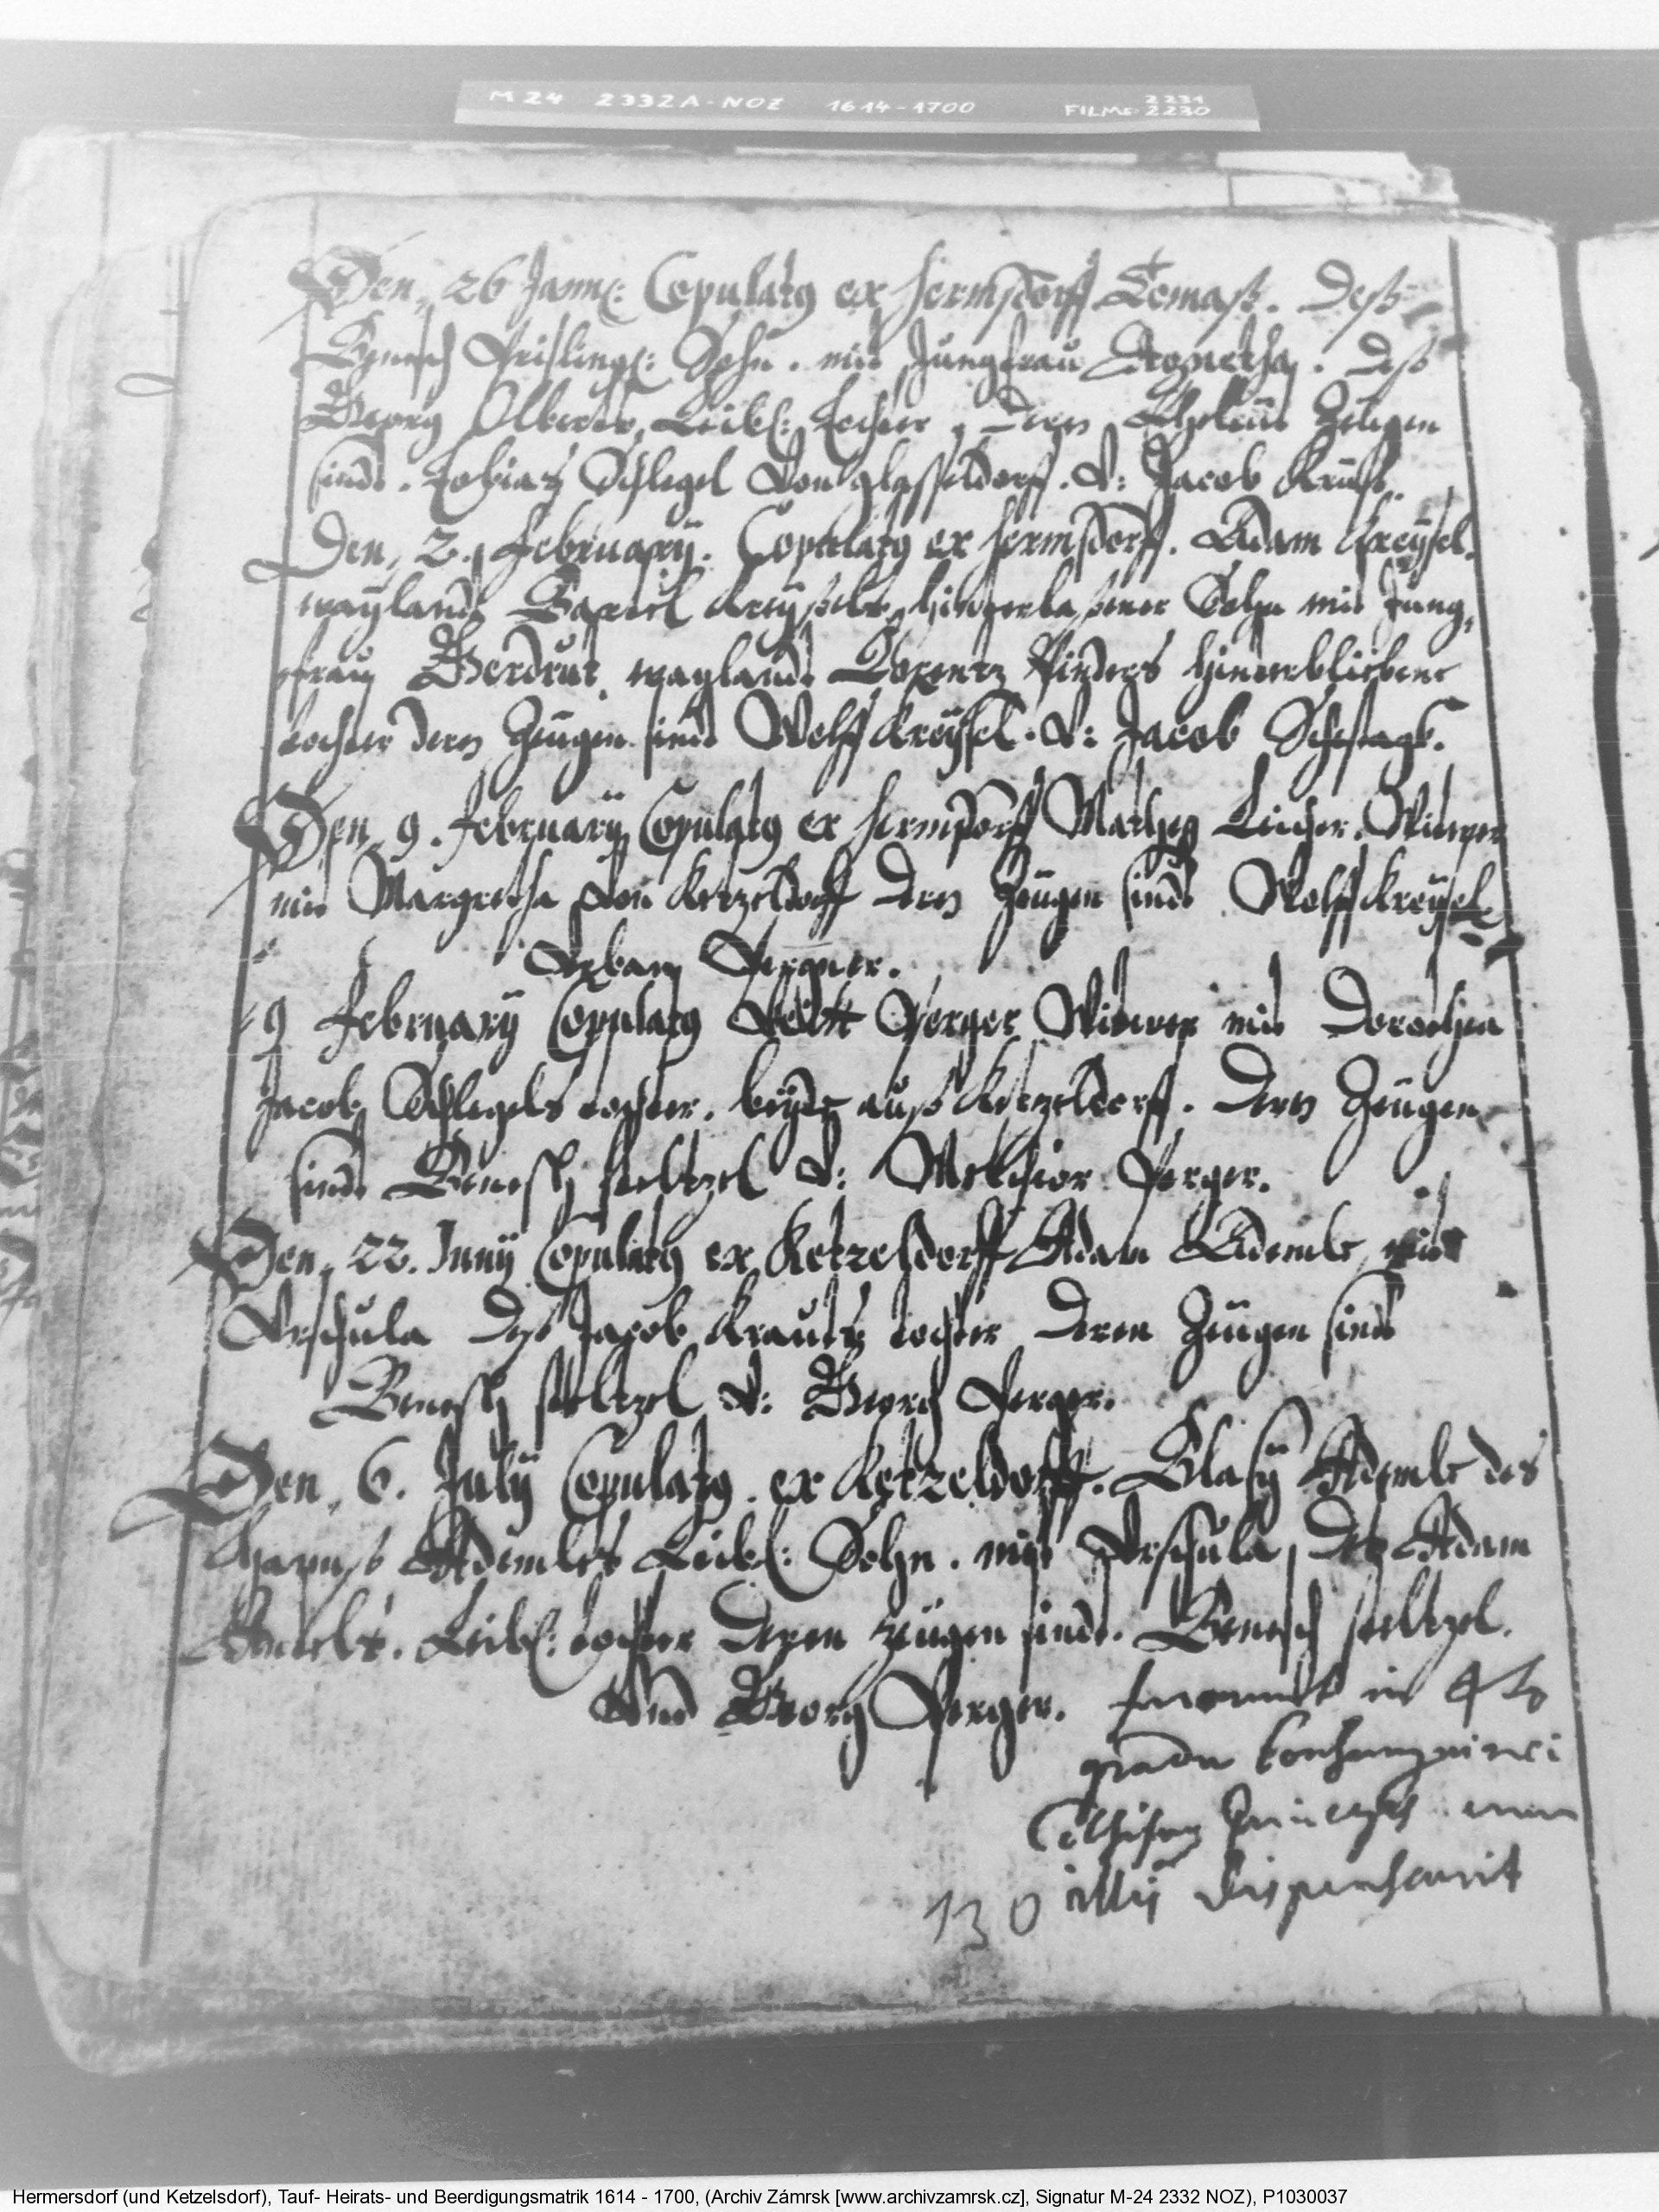 M 24 2332A-NOZ 1614-1700 FILME 2231 2230
Den 26 Jann: Copulatg ex Hermsdorff Tomaß. Deß
Benesch Peislings: Sohn. mit Jungfrau Agnetha. deß
Georg Olberts, Leibl: Tochter, deren Zeugen
sindt. Tobias Schlegel von glasseldorff. V: Jacob
Den 2. February. Copulatg ex Hermsdorff. Adam Kreysel.
waylandt hinterlaßener Sohn mit Jung,
frau Gerdrut, waylandt Lorentz Pinders hinterbliebene
tochter deren Zeugen sindt Wolff Kreysel. V: Jacob
Den 9. February Copulatg ex Hermsdorff Matheß Witwer
mit Margretha von Ketzeldorff deren Zeugen sindt Wolff Kreysel
Urban
9 February Copulatg Veitt Perger Witwer mit Dorothea
Jacob Schlegels tochter. beyde auß Ketzeldorff. deren Zeugen
sindt Benesch steltzel V: Melchior Perger.
Den 22. Juny Copulatg ex Ketzeldorff Adam Ademle mit
Urschula deß Jacob Krauts tochter Deren Zeugen sindt
Benesch steltzel V: Georg Perger.
Den 6. July Copulatg. ex Ketzeldorff. Blasy Ademle des
Ademles Leibl: Sohn. mit Urschula, des Adam
Leibl: tochter Deren zeugen sindt. Benesch steltzel.
Und Georg Perger. in 4to
gradu
cum
130 illis dispensavit
Hermersdorf (und Ketzelsdorf), Tauf- Heirats- und Beerdigungsmatrik 1614 - 1700, (Archiv Zámrsk [www.archivzamrsk.cz], Signatur M-24 2332 NOZ), P1030037